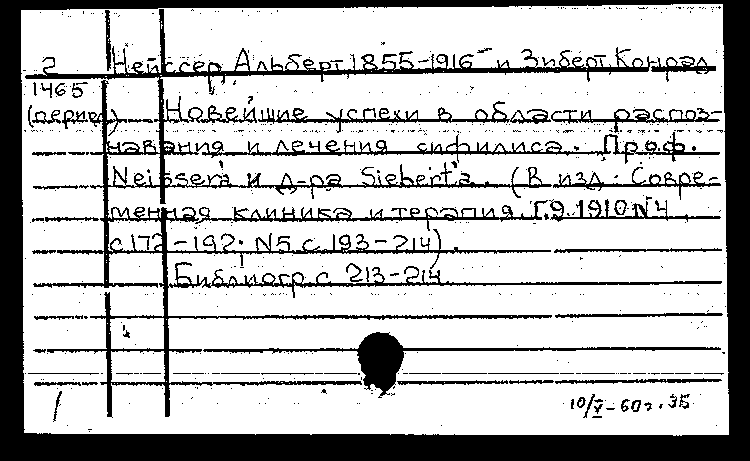 2 Нейссер, Альберт, 1855-1916 и Зиберт, Конрад
1465
(период) Новейшие успехи в области распоз-
навания и лечения сифилиса. Проф.
Neisser'a и д-ра Siebert'a. (В изд. Совре-
менная клиника и терапия. Т.9. 1910 N4,
с.172-192; N5 с. 193-214).
Библиогр. с. 213-214.
1 10/V-60г. ЗБ